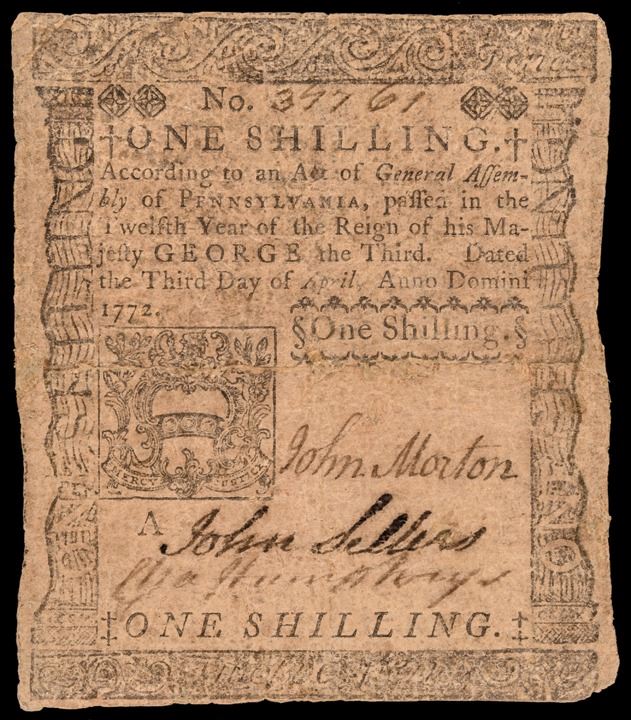 No. 37761
†ONE SHILLING.†
According to an Act of General Aſſem-
bly of PENNSYLVANIA, paſſed in the
Twelfth Year of the Reign of his Ma-
jeſty GEORGE the Third. Dated
the Third Day of April, Anno Domini
1772.
§One Shilling.§
MERCY JUSTICE
John Morton
A John Sellers
Cha Humphreys
‡ONE SHILLING.‡